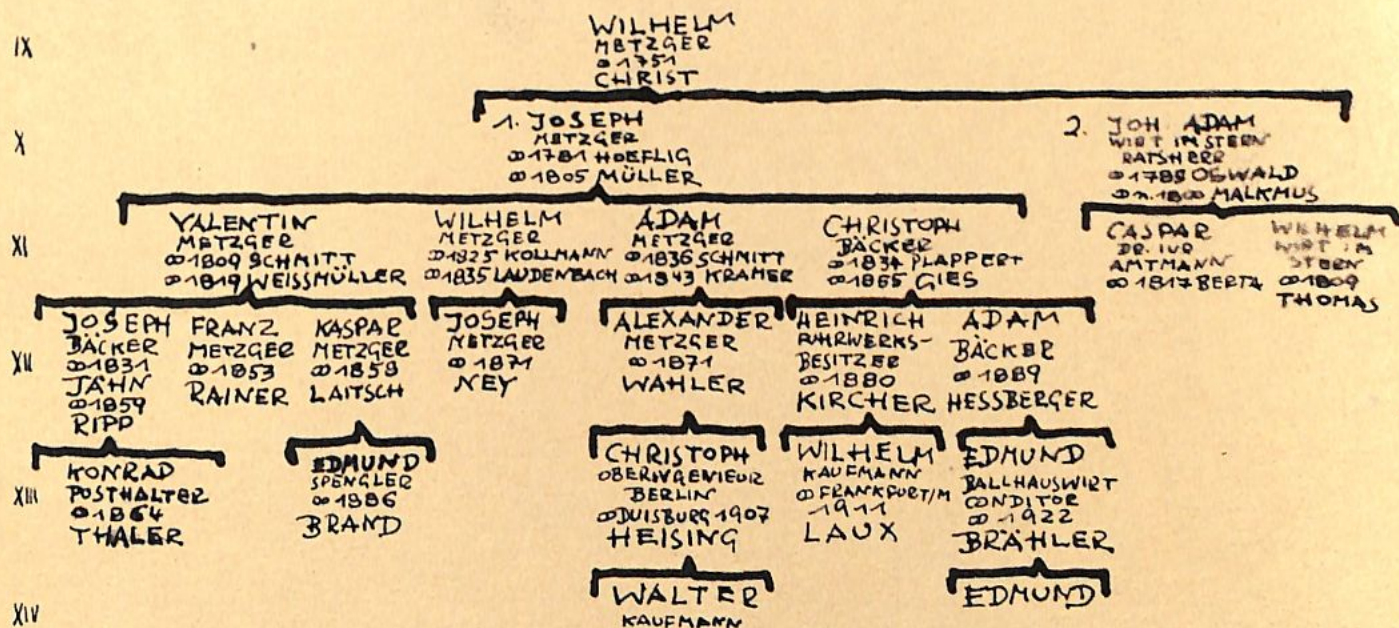 IX
WILHELM
METZGER
∞ 1751
CHRIST
X
1. JOSEPH
METZGER
∞ 1781 HOEFLIG
∞ 1805 MÜLLER
2. JOH ADAM
WIRT IM STERN
RATSHERR
∞ 1788 OSWALD
∞ n. 1800 MALKMUS
XI
VALENTIN
METZGER
∞ 1809 SCHMITT
∞ 1819 WEISSMÜLLER
WILHELM
METZGER
∞ 1825 KOLLMANN
∞ 1835 LAUDENBACH
ADAM
METZGER
∞ 1836 SCHMITT
∞ 1843 KRAMER
CHRISTOPH
BÄCKER
∞ 1834 PLAPPERT
∞ 1865 GIES
CASPAR
DR. IUR
AMTMANN
∞ 1817 BERTA
WILHELM
WIRT IM
STERN
∞ 1809
THOMAS
XII
JOSEPH
BÄCKER
∞ 1831
JAHN
∞ 1859
RIPP
FRANZ
METZGER
∞ 1853
RAINER
KASPAR
METZGER
∞ 1858
LAITSCH
JOSEPH
METZGER
∞ 1871
NEY
ALEXANDER
METZGER
∞ 1871
WAHLER
HEINRICH
FUHRWERKS-
BESITZER
∞ 1880
KIRCHER
ADAM
BÄCKER
∞ 1889
HESSBERGER
XIII
KONRAD
POSTHALTER
∞ 1864
THALER
EDMUND
SPENGLER
∞ 1886
BRAND
CHRISTOPH
OBERINGENIEUR
BERLIN
∞ DUISBURG 1907
HEISING
WILHELM
KAUFMANN
∞ FRANKFURT/M
1911
LAUX
EDMUND
BALLHAUSWIRT
CONDITOR
∞ 1922
BRÄHLER
XIV
WALTER
KAUFMANN
EDMUND